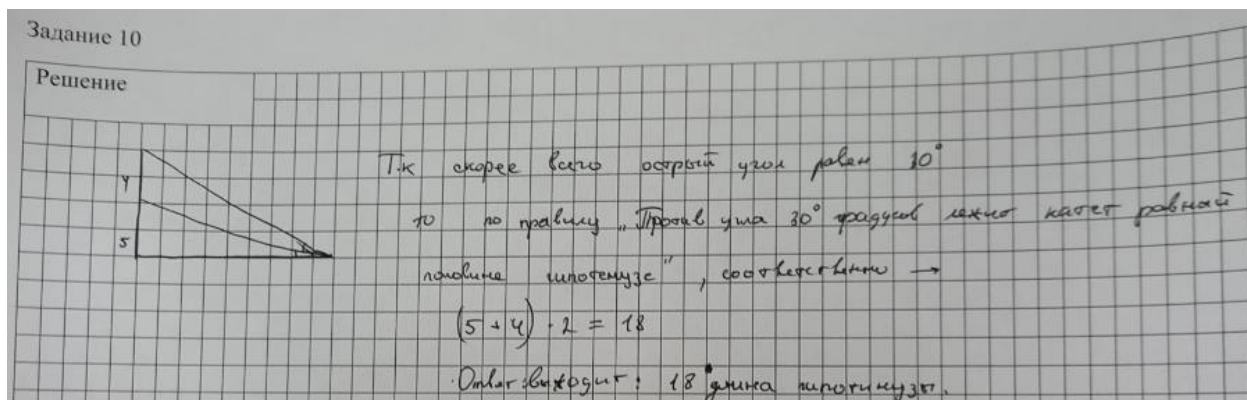 Задание 10
Решение
4
5
Т.к скорее всего острый угол равен 30°
то по правилу „Против угла 30° градусов лежит катет равный
половине гипотенузе", соответственно →
(5 + 4) · 2 = 18
Ответ: выходит: 18 длина гипотинузы.